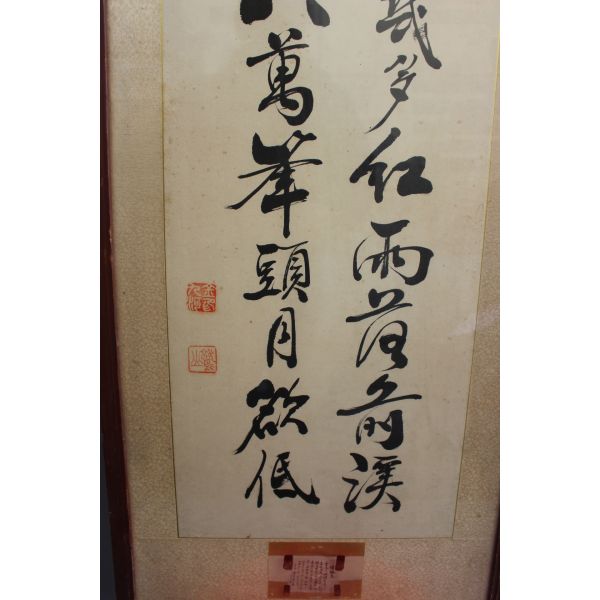 幾多紅雨落前溪
萬峯頭月欲低